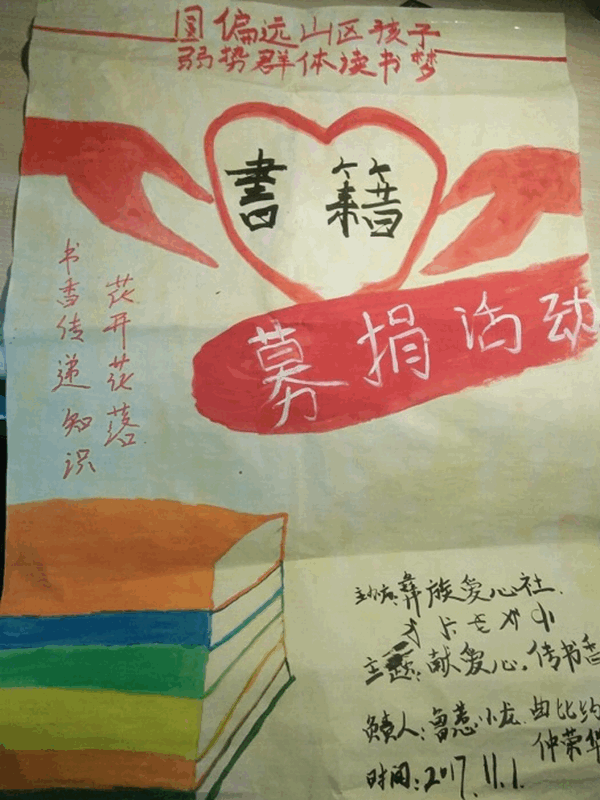 圆偏远山区孩子
弱势群体读书梦
書籍
募捐活动
花开花落
书香传递知识
主办方:彝族爱心社
主题:献爱心,传书香
负责人:鲁惹小龙 曲比约
仲荣华
时间:2017.11.1.